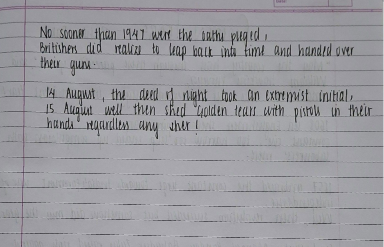 No sooner than 1947 were the oaths pleged,
Britishers did realize to leap back into time and handed over
their guns.
14 August, the deed of night took an extremist initial,
15 August well then shed golden tears with pistols in their
hands regardless any sher!